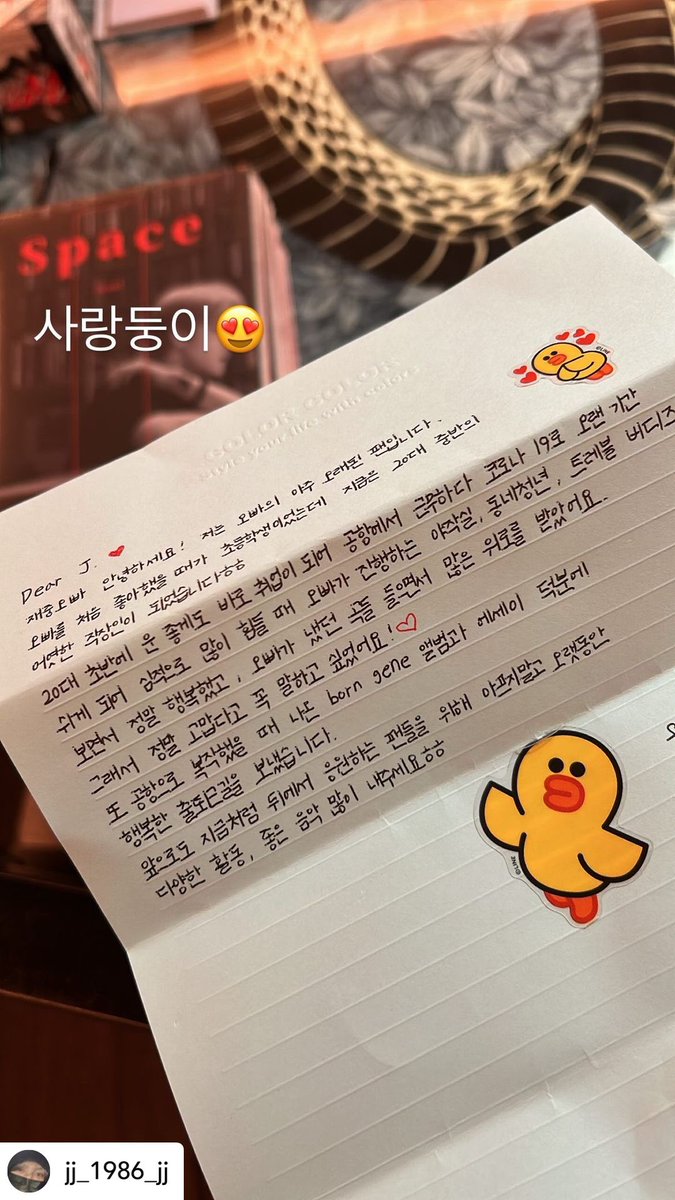 Space
사랑둥이😍
COLOR COLOR
style your life with colors
Dear J. ♥
재중오빠 안녕하세요! 저는 오빠의 아주 오래된 팬입니다.
오빠를 처음 좋아했을 때가 초등학생이었는데 지금은 20대 중반의
어엿한 직장인이 되었습니다ㅎㅎ
20대 초반에 운 좋게도 바로 취업이 되어 공항에서 근무하다 코로나 19로 오랜 기간
쉬게 되어 심적으로 많이 힘들 때 오빠가 진행하는 야작실, 동네청년, 트레블 버디즈
보면서 정말 행복했고, 오빠가 냈던 곡들 들으면서 많은 위로를 받았어요.
그래서 정말 고맙다고 꼭 말하고 싶었어요!♡
또 공항으로 복직했을 때 나온 born gene 앨범과 에세이 덕분에
행복한 출퇴근길을 보냈습니다.
앞으로도 지금처럼 뒤에서 응원하는 팬들을 위해 아프지말고 오랫동안
다양한 활동, 좋은 음악 많이 내주세요ㅎㅎ
jj_1986_jj